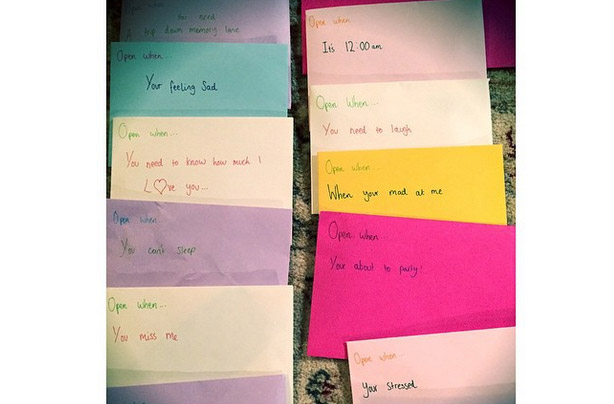 Open when...
You need
A trip down memory lane
Open when...
Your feeling Sad
Open when...
You need to know how much I
L♡ve you...
Open when...
You can't sleep
Open when...
You miss me
Open when...
It's 12:00am
Open When...
You need to laugh
Open when...
When your mad at me
Open when...
Your about to party!
Open when...
Your stressed